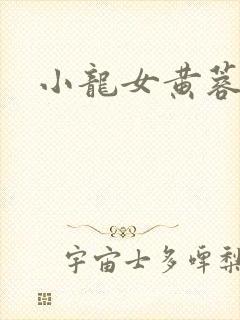 小龍女黃蓉
宇宙士多啤梨